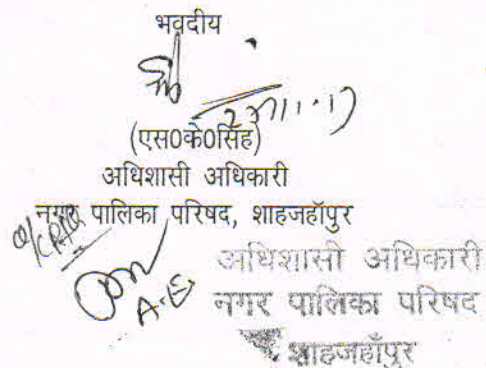 भवदीय
(एस0के0सिंह)
अधिशासी अधिकारी
नगर पालिका परिषद, शाहजहॉपुर
A.E
अधिशासी अधिकारी
नगर पालिका परिषद
शाहजहाँपुर